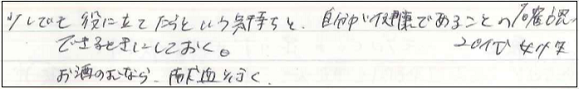 少しでも役に立てたらという気持ちと、自分が健康であることの確認
できるときにしておく。 20代 女性
お酒のむなら、献血行く。